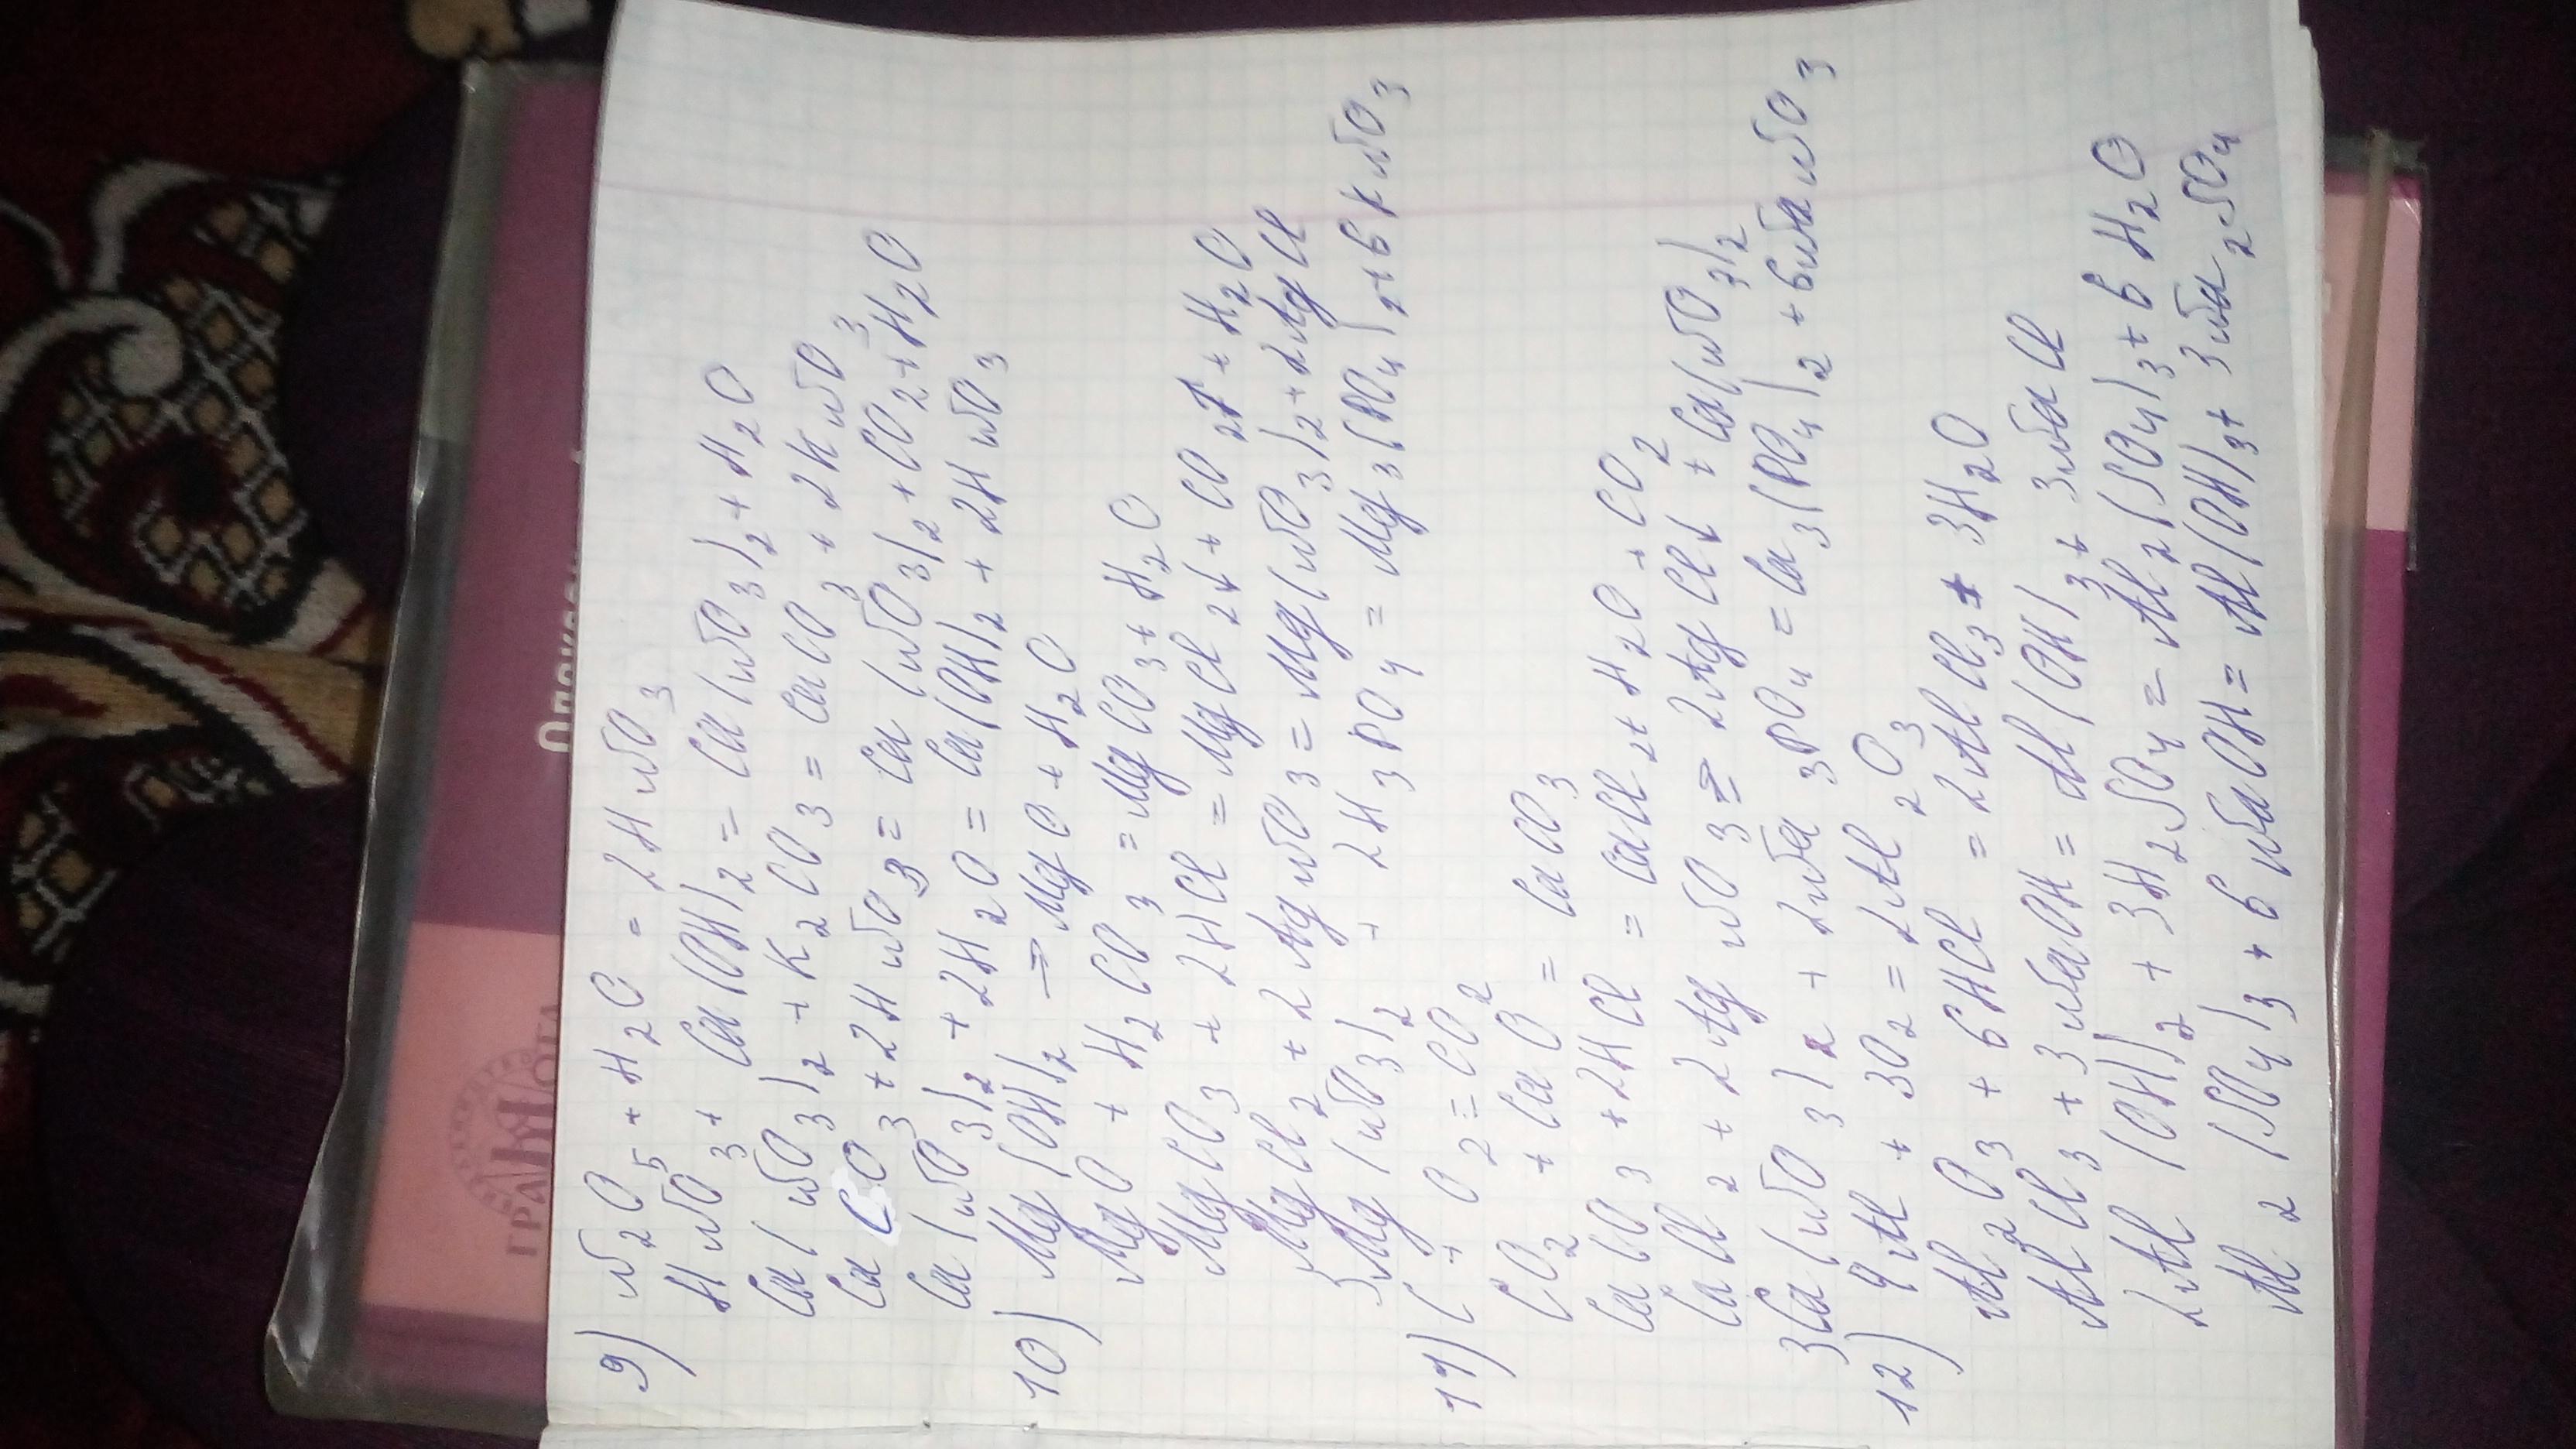 9) N2O5 + H2O = 2HNO3
HNO3 + Ca(OH)2 = Ca(NO3)2 + H2O
Ca(NO3)2 + K2CO3 = CaCO3 + 2KNO3
CaCO3 + 2HNO3 = Ca(NO3)2 + CO2 + H2O
Ca(NO3)2 + 2H2O = Ca(OH)2 + 2HNO3
10) Mg(OH)2 = MgO + H2O
MgO + H2CO3 = MgCO3 + H2O
MgCO3 + 2HCl = MgCl2↓ + CO2↑ + H2O
MgCl2 + 2AgNO3 = Mg(NO3)2 + 2AgCl
3Mg(NO3)2 + 2H3PO4 = Mg3(PO4)2 + 6KNO3
11) C + O2 = CO2
CO2 + CaO = CaCO3
CaCO3 + 2HCl = CaCl2 + H2O + CO2
CaCl2 + 2AgNO3 = 2AgCl↓ + Ca(NO3)2
3Ca(NO3)2 + 2Na3PO4 = Ca3(PO4)2 + 6NaNO3
12) 4Al + 3O2 = 2Al2O3
Al2O3 + 6HCl = 2AlCl3 + 3H2O
AlCl3 + 3NaOH = Al(OH)3 + 3NaCl
2Al(OH)2 + 3H2SO4 = Al2(SO4)3 + 6H2O
Al2(SO4)3 + 6NaOH = Al(OH)3 + 3Na2SO4